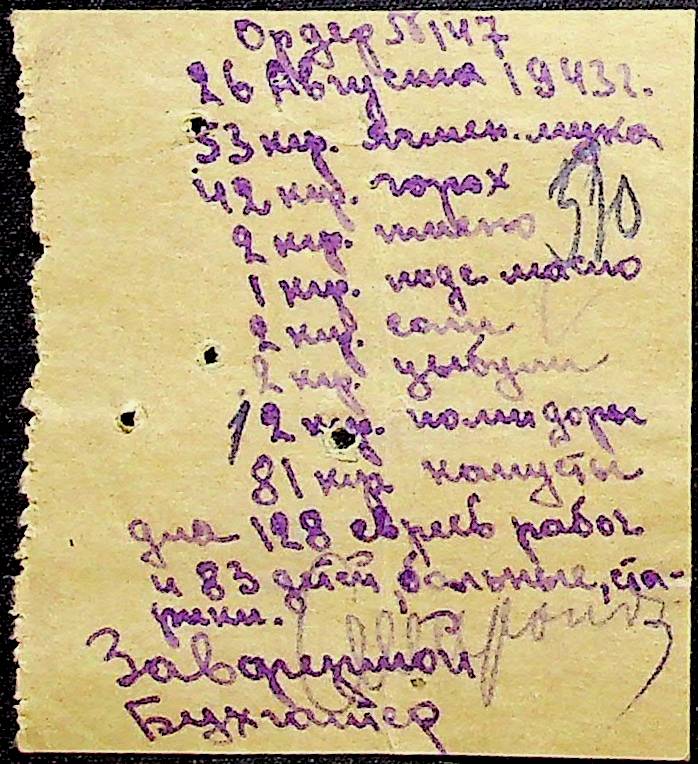 Ордер № 147
26 Августа 1943 г.
53 кгр. Ячмен. мука
42 кгр. горох
570
2 кгр. пшено
1 кгр. подс. масло
2 кгр. соли
2 кгр. цыбули
12 кгр. помидоры
81 кгр. капусты
для 128 евреев рабоч
и 83 детей, больные, ста-
рики.
Завфермой
Бухгалтер